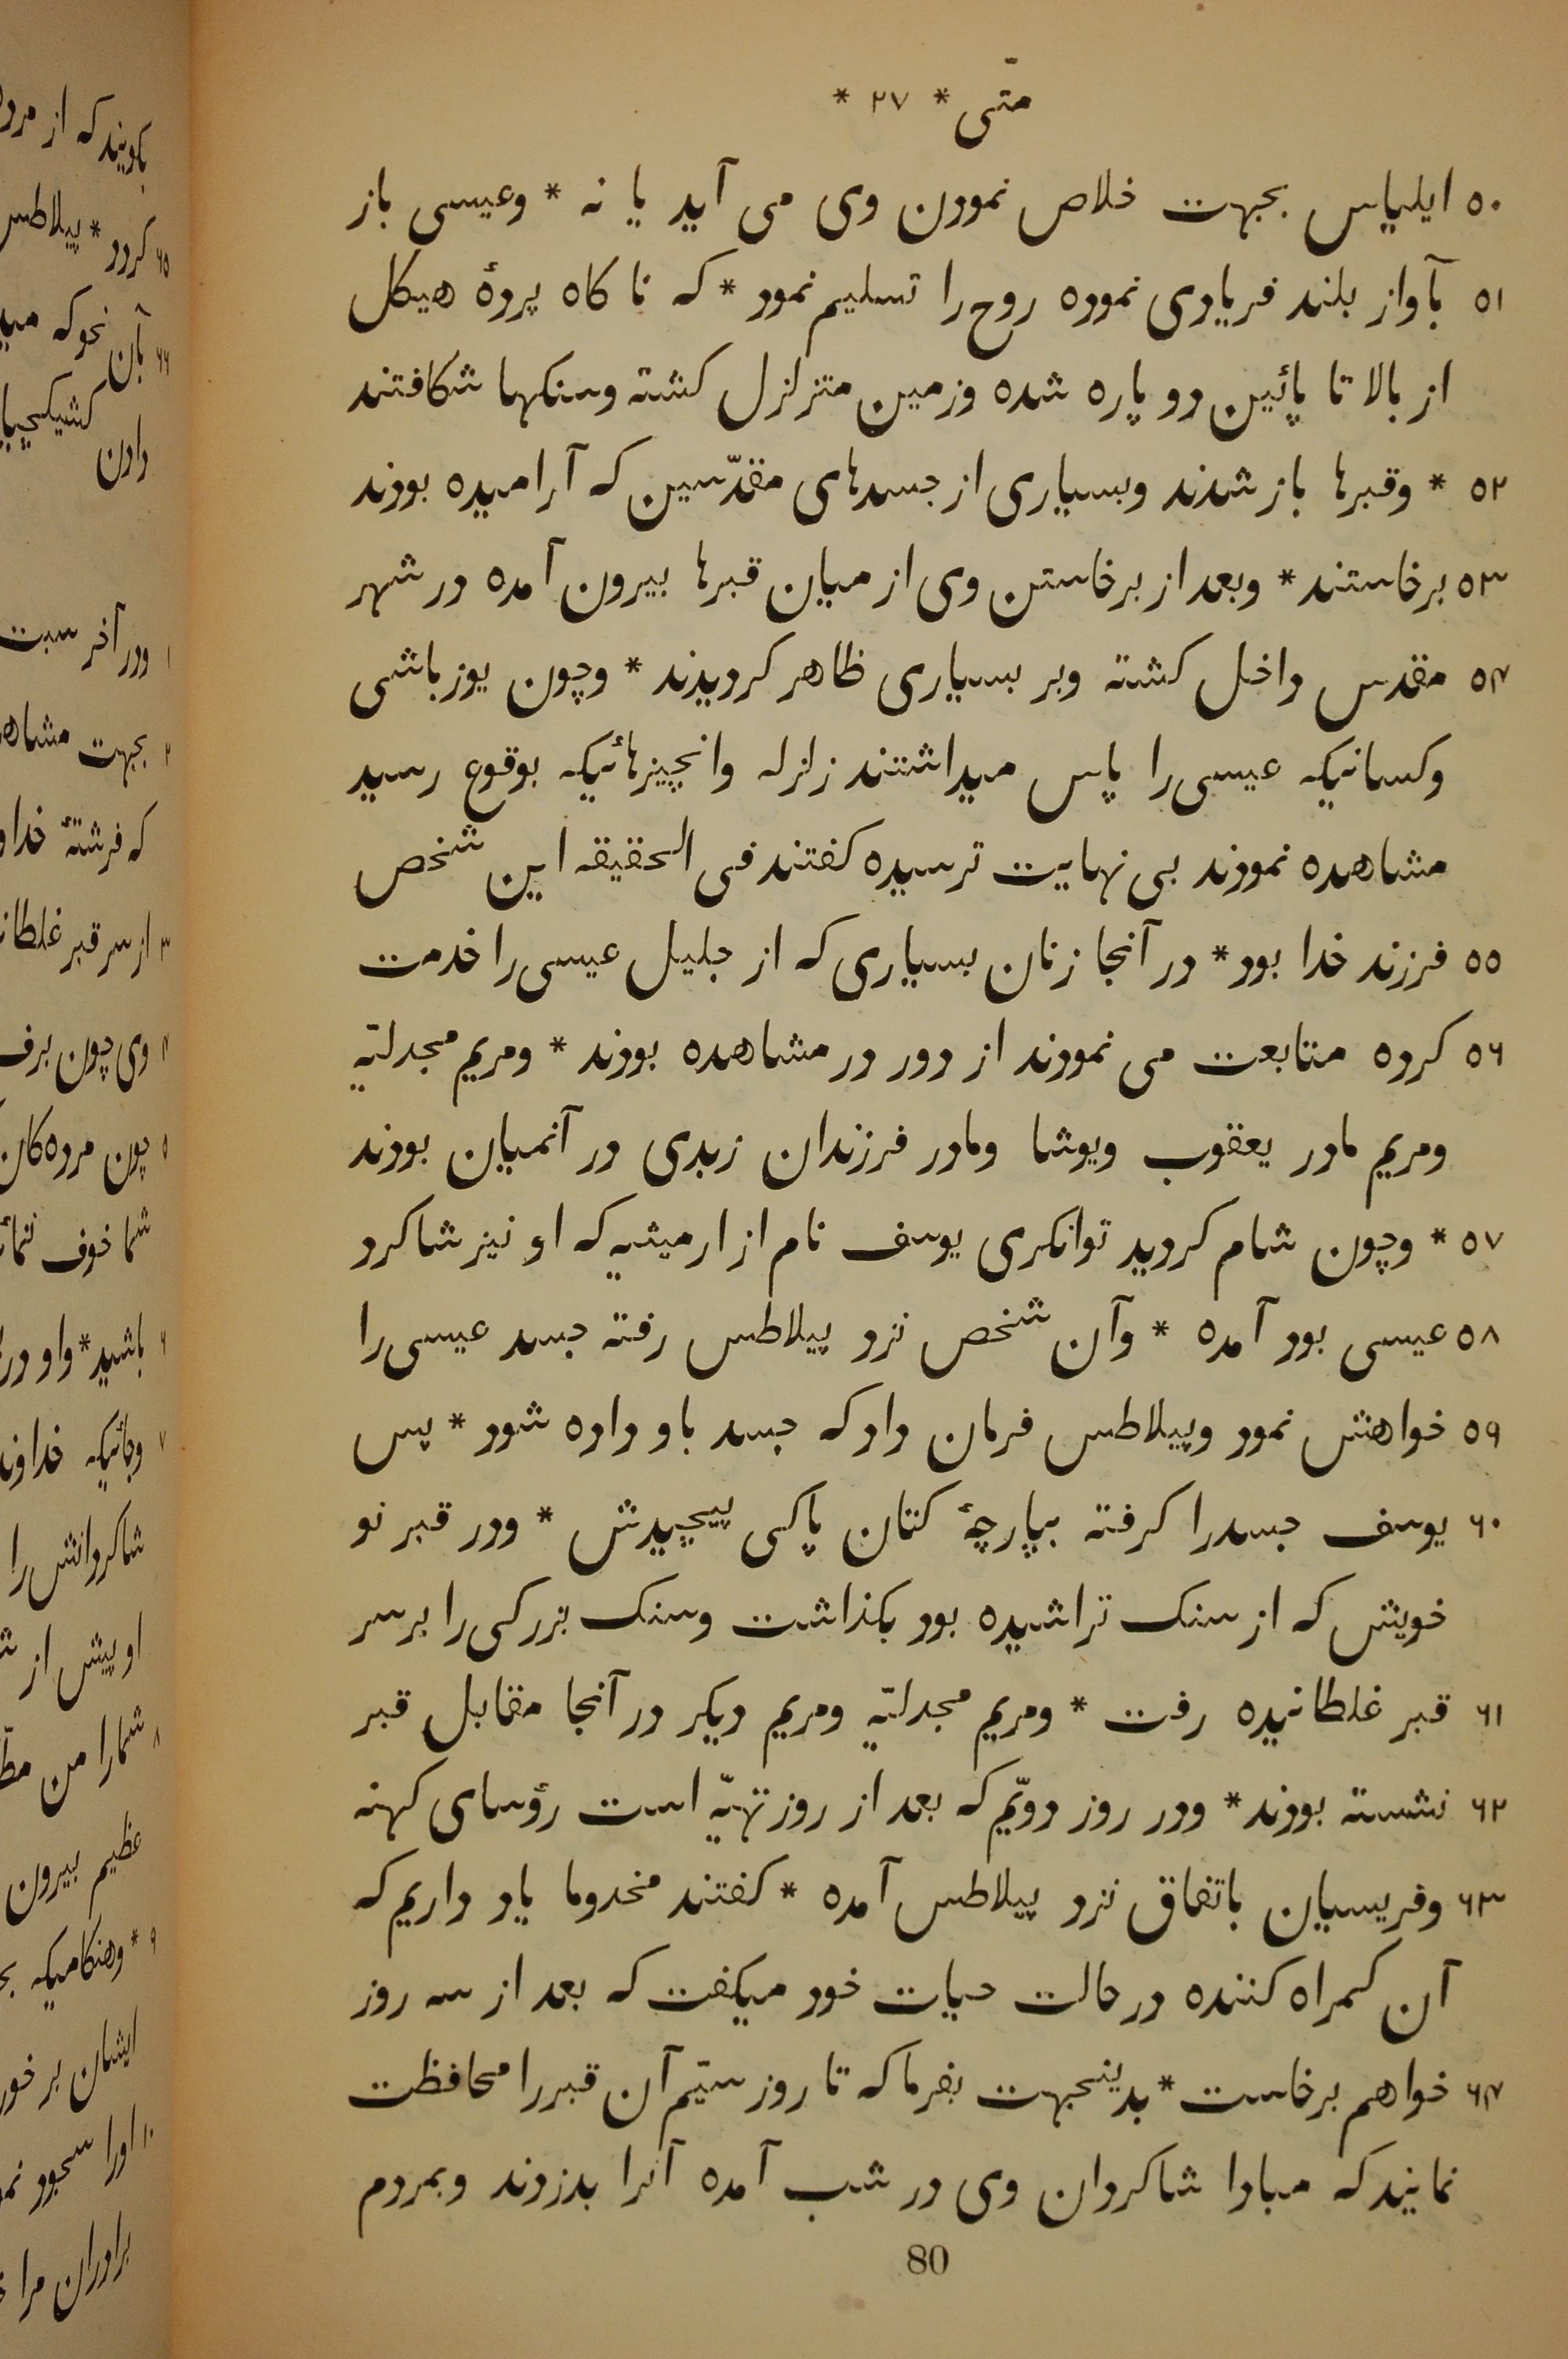 متّی * ۲۷ *
۵۰ ایلیاس بجهت خلاص نمودن وی می آید یا نه * وعیسی باز
۵۱ بآواز بلند فریادی نموده روح را تسلیم نمود * که نا کاه پردۀ هیکل
از بالا تا پائین دو پاره شده وزمین متزلزل کشته وسنکها شکافتند
۵۲ * وقبرها باز شدند وبسیاری از جسدهای مقدّسین که آرامیده بودند
۵۳ برخاستند * وبعد از برخاستن وی از میان قبرها بیرون آمده در شهر
۵۴ مقدس داخل کشته وبر بسیاری ظاهر کردیدند * وچون یوزباشی
وکسانیکه عیسی را پاس میداشتند زلزله وانچیزهائیکه بوقوع رسید
مشاهده نمودند بی نهایت ترسیده کفتند فی الحقیقه این شخص
۵۵ فرزند خدا بود * در آنجا زنان بسیاری که از جلیل عیسی را خدمت
۵۶ کرده متابعت می نمودند از دور در مشاهده بودند * ومریم مجدلیّه
ومریم مادر یعقوب ویوشا ومادر فرزندان زبدی در آنمیان بودند
۵۷ * وچون شام کردید توانکری یوسف نام از ارمیثیه که او نیز شاکرد
۵۸ عیسی بود آمده * وآن شخص نزد پیلاطس رفته جسد عیسی را
۵۹ خواهش نمود وپیلاطس فرمان داد که جسد باو داده شود * پس
۶۰ یوسف جسدرا کرفته بپارچۀ کتان پاکی پیچیدش * ودر قبر نو
خویش که از سنک تراشیده بود بکذاشت وسنک بزرکی را بر سر
۶۱ قبر غلطانیده رفت * ومریم مجدلیّه ومریم دیکر در آنجا مقابل قبر
۶۲ نشسته بودند * ودر روز دویّم که بعد از روز تهیّه است رؤسای کهنه
۶۳ وفریسیان باتفاق نزد پیلاطس آمده * کفتند مخدوما یاد داریم که
آن کمراه کننده در حالت حیات خود میکفت که بعد از سه روز
۶۴ خواهم برخاست * بدینجهت بفرما که تا روز سیّم آن قبررا محافظت
نمایند که مبادا شاکردان وی در شب آمده آنرا بدزدند وبمردم
80
بکویند که از
۶۵ کردد * پیلاطس
۶۶ بآن نحو که
دادن
۱ ودر آخر سبت
۲ بجهت
که فرشتۀ
۳ از سر قبر
۴ وی چون برف
۵ چون مرده کان
شما خوف
۶ باشید * واو
۷ وبجائیکه
شاکردانش را
او پیش از
۸ شمارا من
عظیم بیرون
۹ * وهنکامیکه
ایشان بر
۱۰ اورا سجود
برادران مرا